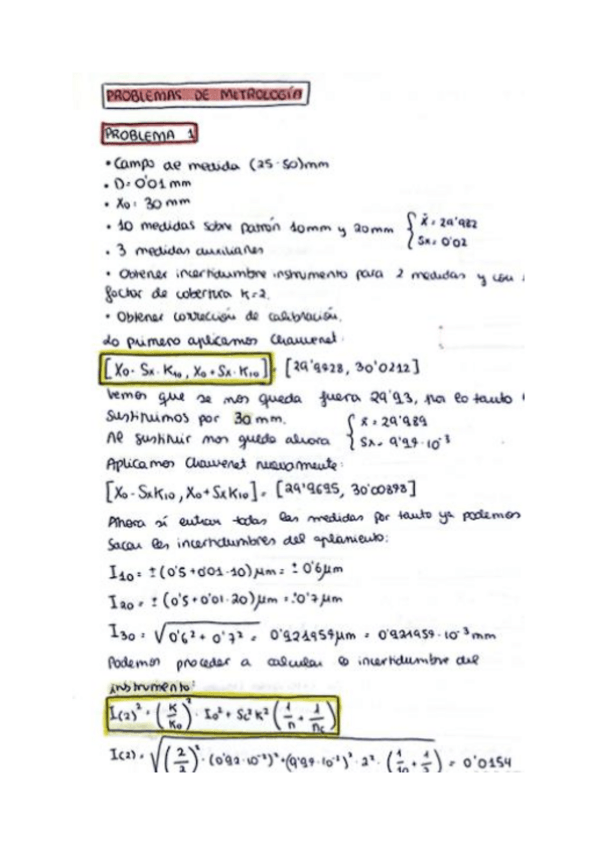 PROBLEMAS DE METROLOGÍA
PROBLEMA 1
• Campo de medida (25-50)mm
• D= 0'01 mm
• X0: 30 mm
• 10 medidas sobre patrón 10mm y 20mm { x̄ = 29'982
Sx = 0'02
• 3 medidas auxiliares
• Obtener incertidumbre instrumento para 2 medidas y con
factor de cobertura K=2.
• Obtener corrección de calibración.
Lo primero aplicamos Chauvenet:
[X0 - Sx · K10 , X0 + Sx · K10] = [29'9428, 30'0212]
Vemos que se nos queda fuera 29'93, por lo tanto
sustituimos por 30 mm. { x̄ = 29'989
Al sustituir nos queda ahora Sx = 9'94·10⁻³
Aplicamos Chauvenet nuevamente:
[X0 - SxK10 , X0 + SxK10] = [29'9695, 30'00898]
Ahora sí entran todas las medidas por tanto ya podemos
sacar las incertidumbres del
I10 = ± (0'5 + 0'01 · 10) μm = ± 0'6 μm
I20 = ± (0'5 + 0'01 · 20) μm = ± 0'7 μm
I30 = √0'6² + 0'7² = 0'921954 μm = 0'921954 · 10⁻³ mm
Podemos proceder a calcular la incertidumbre del
instrumento:
I(2)² = (K/K0)² · I0² + Sc² K² (1/n + 1/nc)
I(2) = √(2/2)² · (0'92·10⁻³)² + (9'94·10⁻³)² · 2² · (1/10 + 1/2) = 0'0154